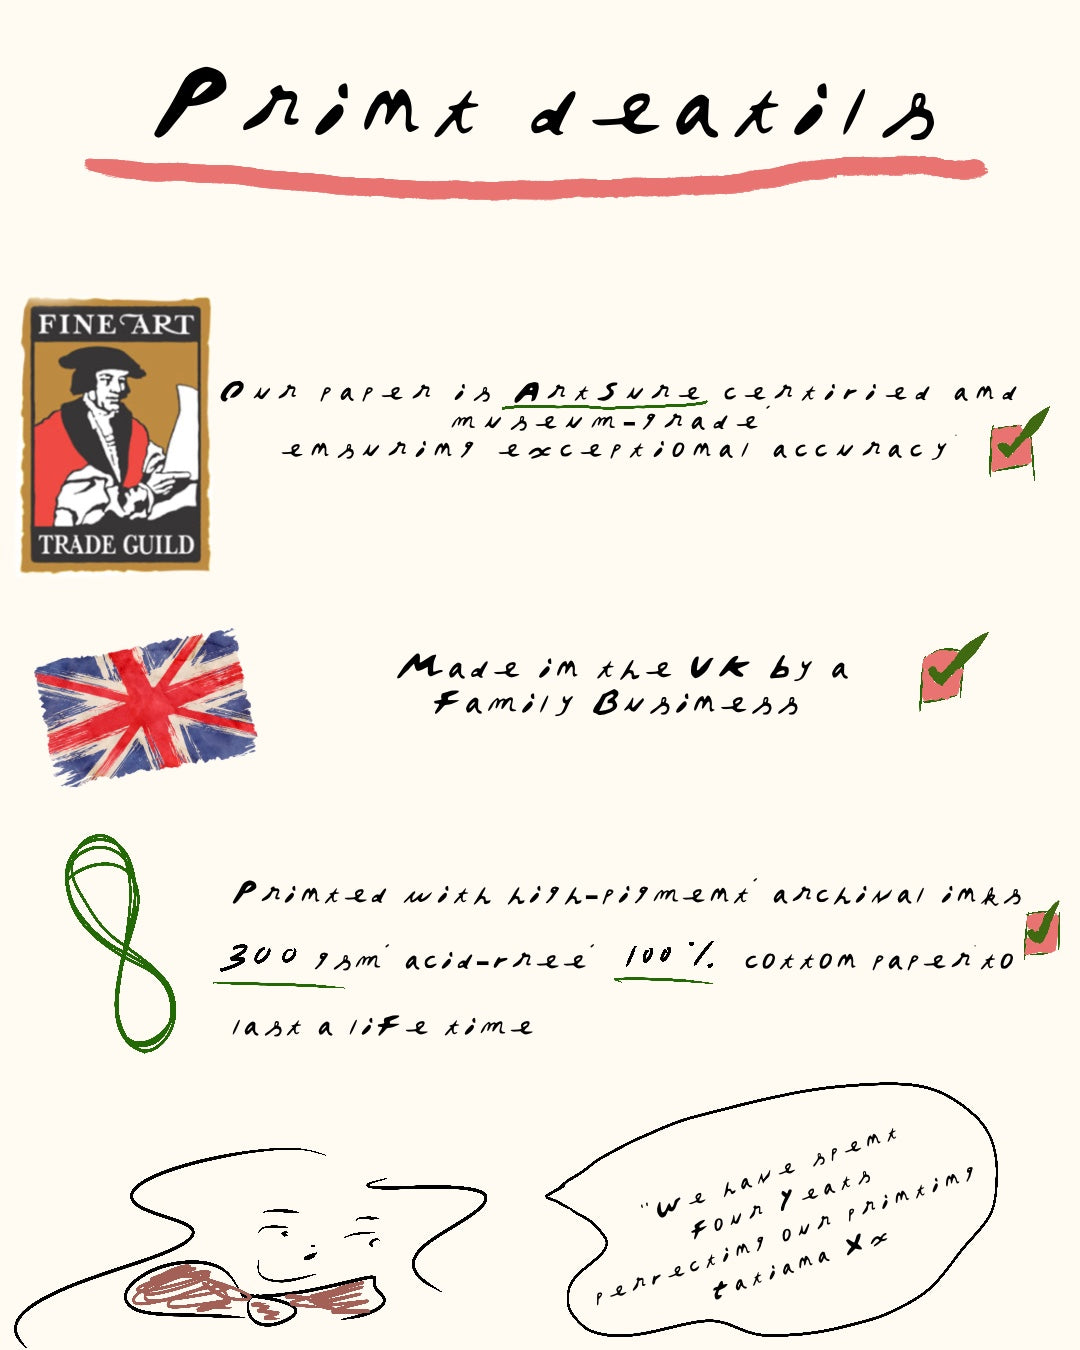 Print deatils
FINE ART
TRADE GUILD
Our paper is ArtSure certified and
museum-grade
ensuring exceptional accuracy
Made in the UK by a
Family Business
Printed with high-pigment archival inks
300 gsm acid-free 100% cotton paper to
last a life time
"We have spent
four yeats
perfecting our printing
tatiana Xx